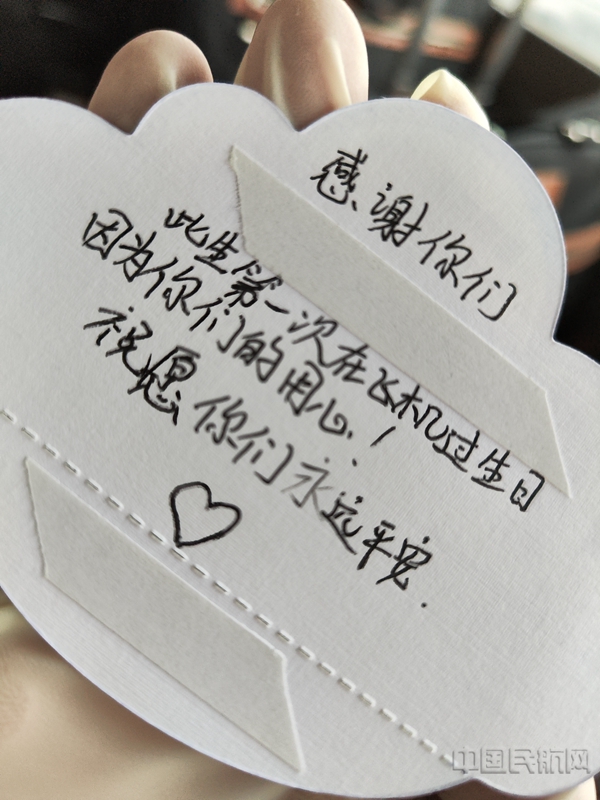 感谢你们
此生第一次在飞机过生日
因为你们的用心!
祝愿你们永远平安.
中国民航网